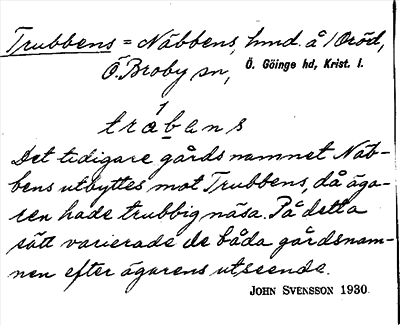 Trubbens = Näbbens, hmd. å 1 Oröd,
Ö. Broby sn, Ö. Göinge hd, Krist. l.
træbans
Det tidigare gårdsnamnet Näb-
bens utbyttes mot Trubbens, då äga-
ren hade trubbig näsa. På detta
sätt varierade de båda gårdsnam-
nen efter ägarens utseende.
JOHN SVENSSON 1930.